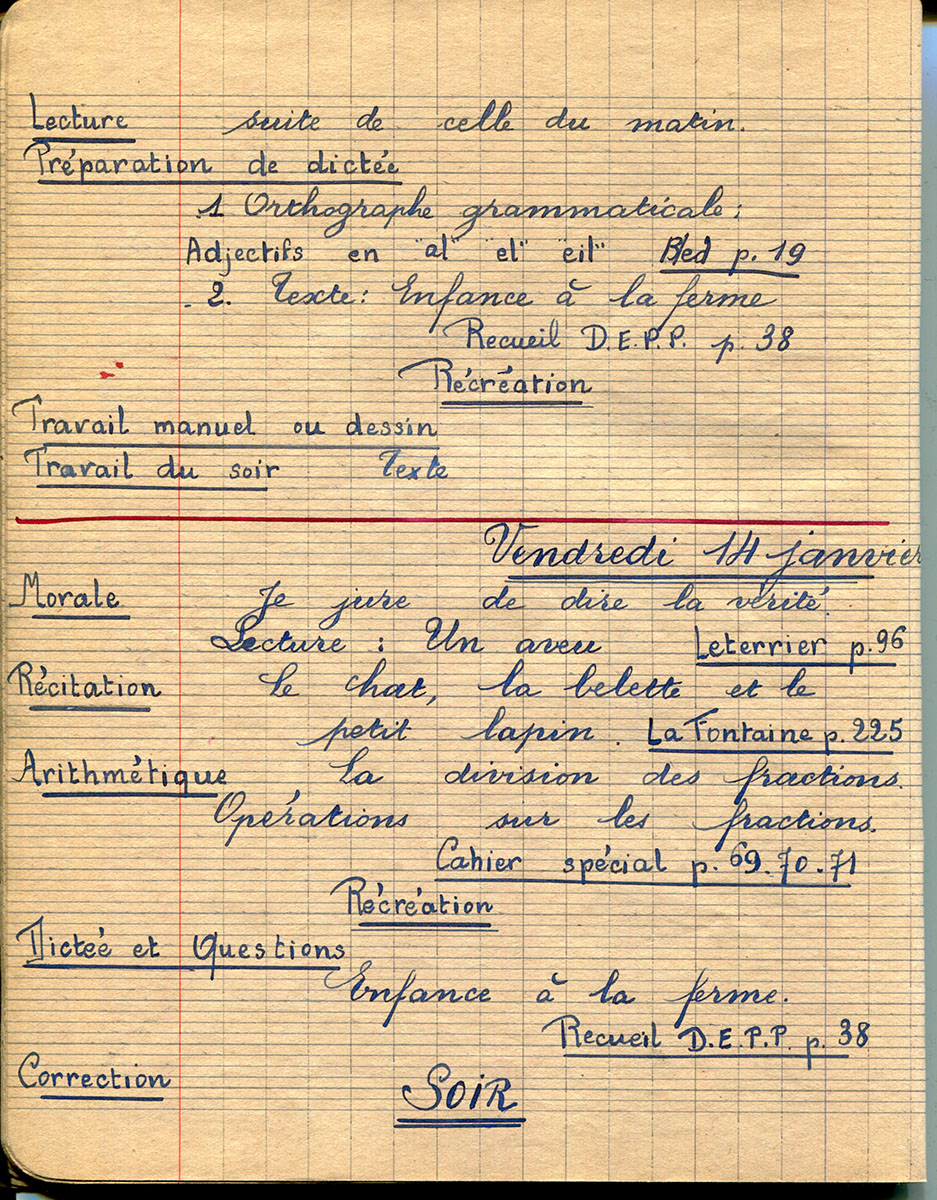 Lecture suite de celle du matin.
Préparation de dictée
1 Orthographe grammaticale :
Adjectifs en "al" "el" "eil" Bled p. 19
2. Texte : Enfance à la ferme
Recueil D.E.P.P. p. 38
Récréation
Travail manuel ou dessin
Travail du soir Texte
Vendredi 14 janvier
Morale Je jure de dire la vérité.
Lecture : Un aveu Leterrier p. 96
Récitation Le chat, la belette et le
petit lapin. La Fontaine p. 225
Arithmétique La division des fractions.
Opérations sur les fractions.
Cahier spécial p. 69.70.71
Récréation
Dictée et Questions
Enfance à la ferme.
Recueil D.E.P.P. p. 38
Correction
SOIR